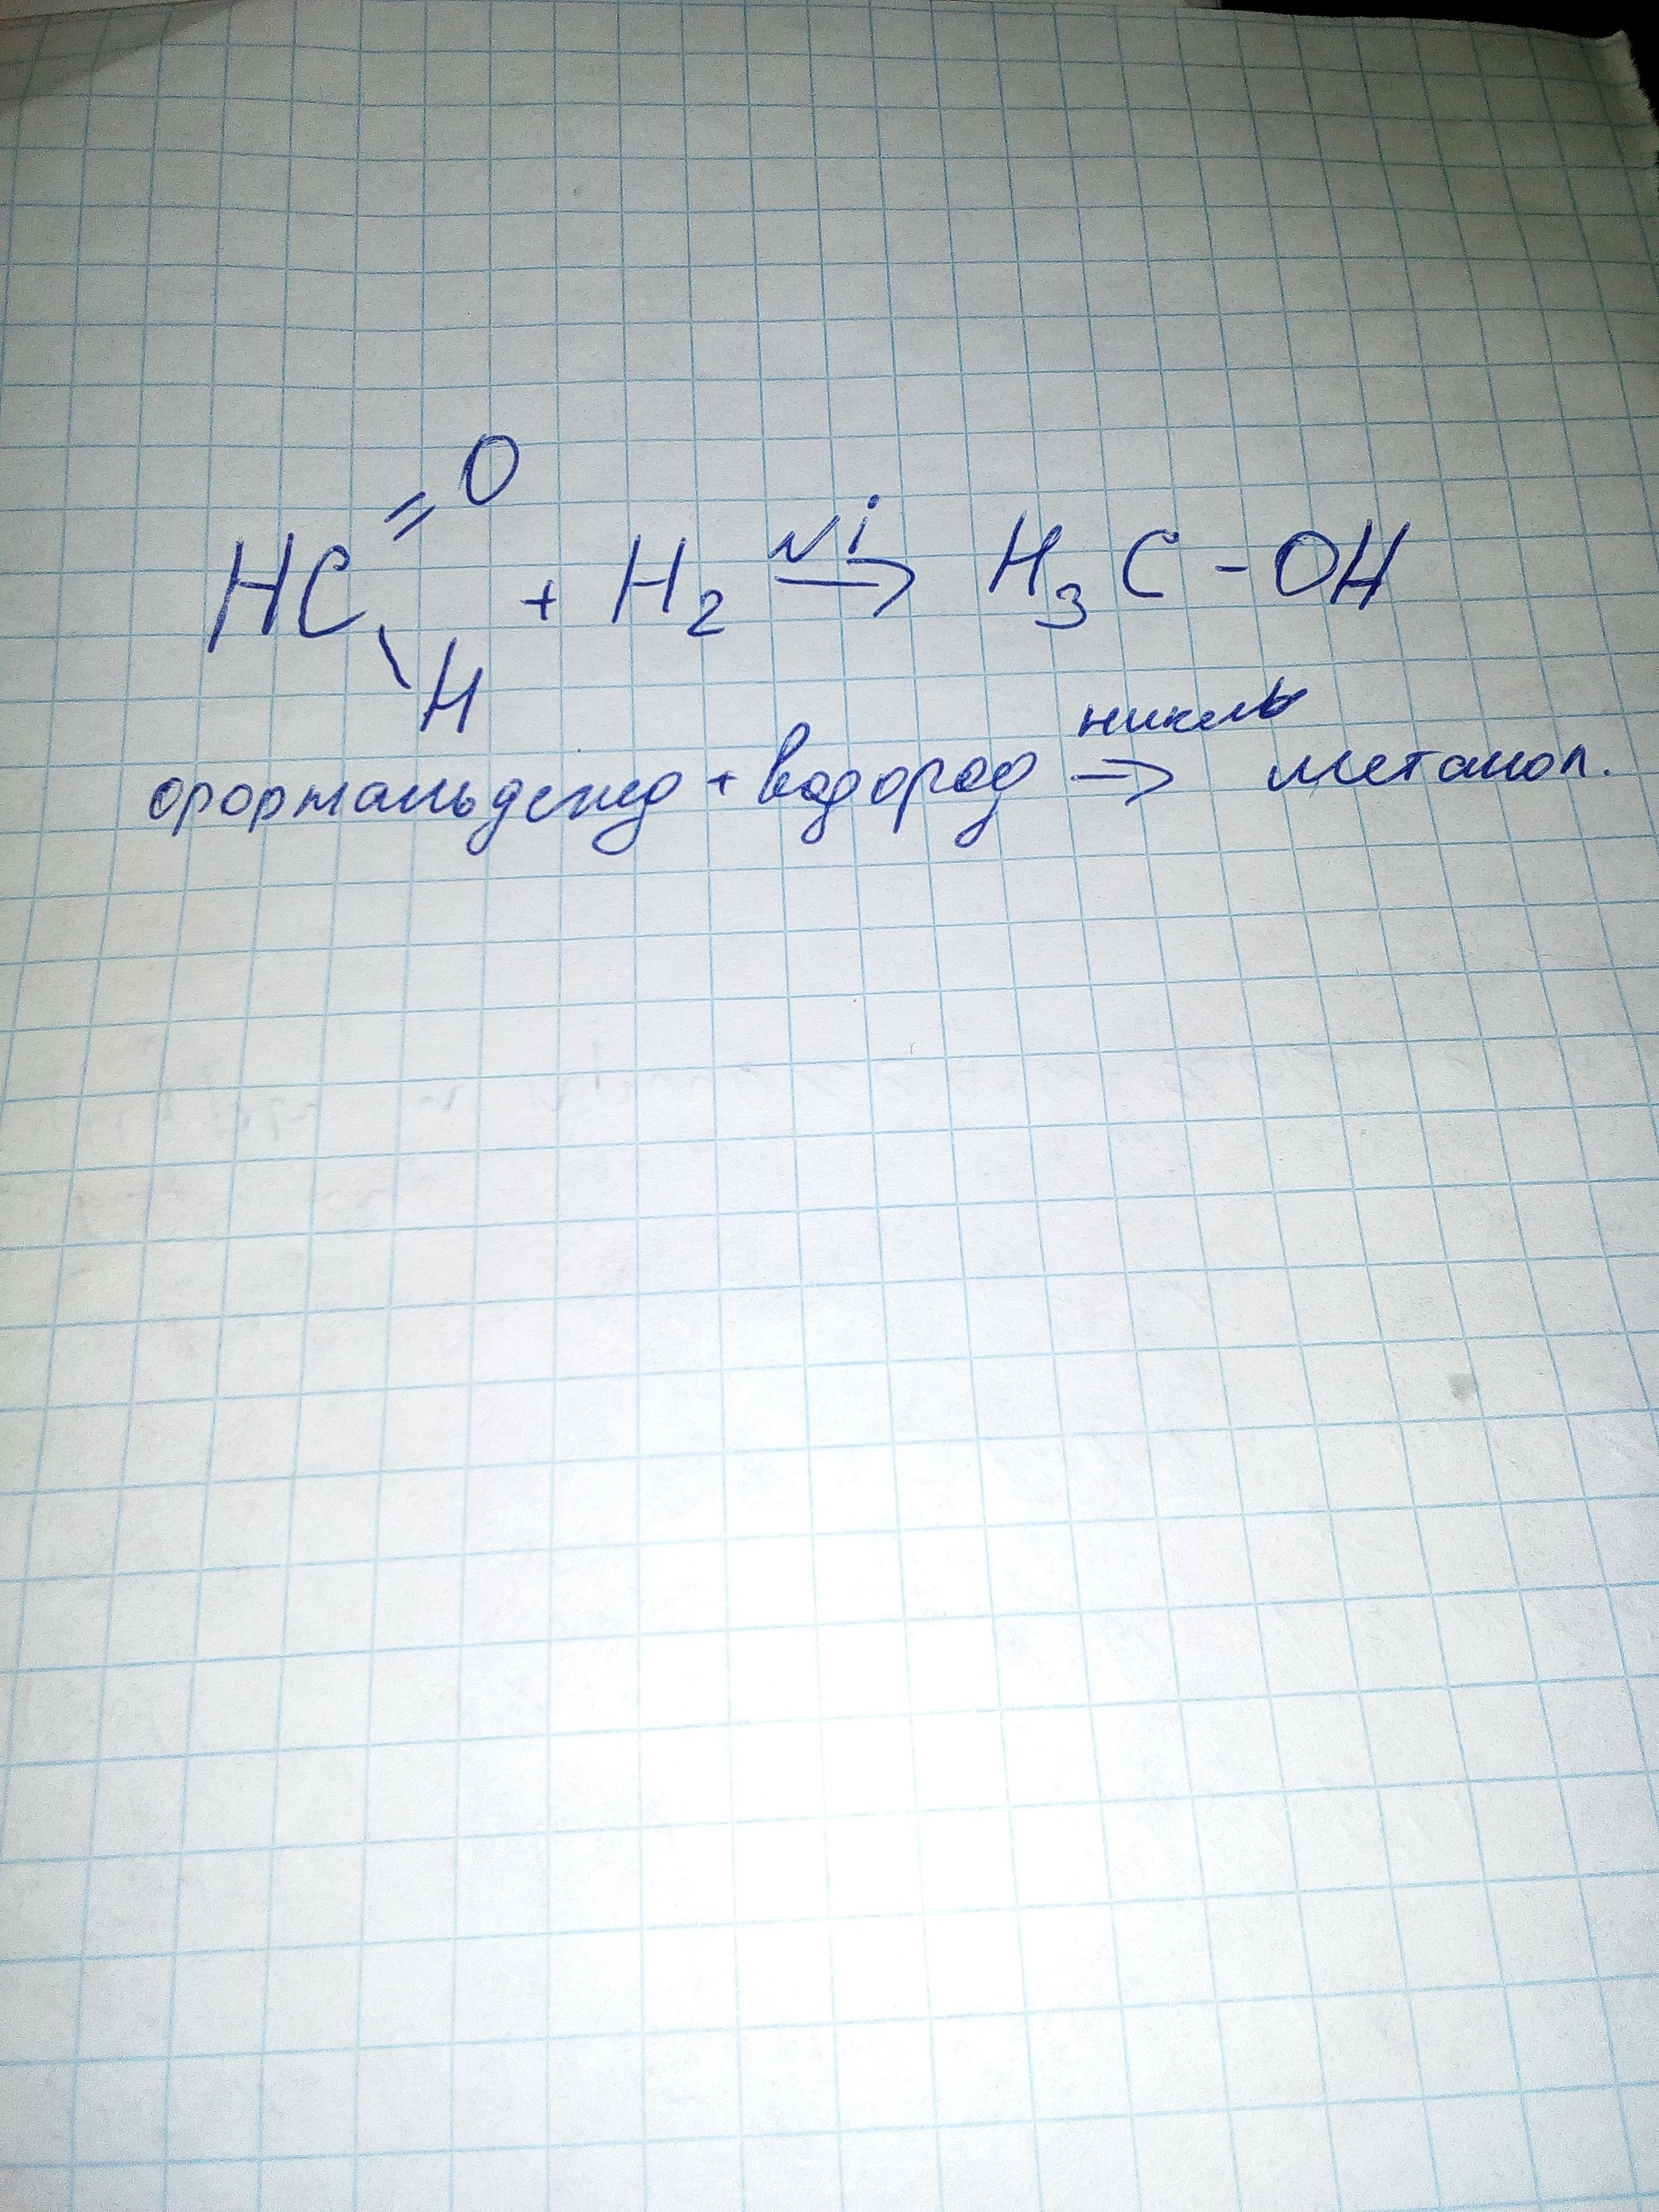 HC=O-H + H₂ Ni→ H₃C-OH
формальдегид + водород никель→ метанол.